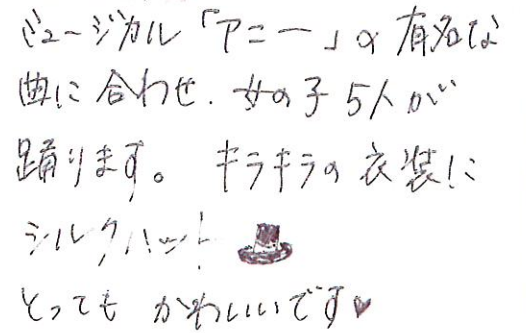 ミュージカル「アニー」の有名な
曲に合わせ、女の子5人が
踊ります。 キラキラの衣装に
シルクハット
とっても かわいいです♥